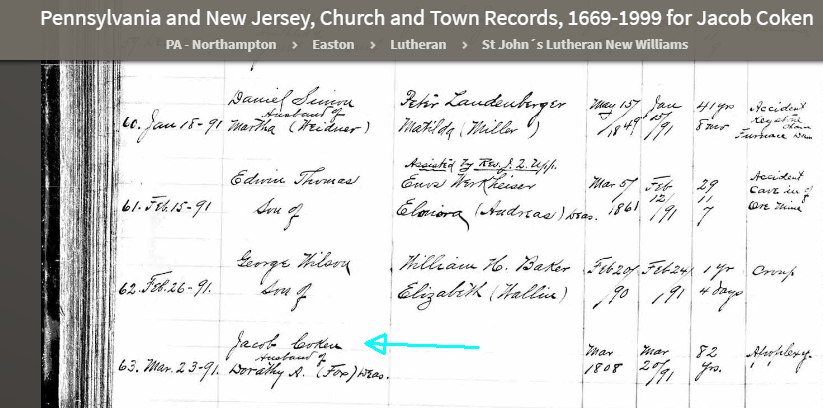 Pennsylvania and New Jersey, Church and Town Records, 1669-1999 for Jacob Coken
PA - Northampton > Easton > Lutheran > St John´s Lutheran New Williams
Daniel Simon Peter Laudenberger May 15/ Jan 41 yrs Accident
Husband of Keystone
60. Jan 18-91 Martha (Weidner) Matilda (Miller) 1849 15/91 8 mo Furnace
Assisted by Rev. J. Q. Upp.
Edwin Thomas Enos Werkheiser Mar 5/ Feb 29 Accident
12/ 11 Cave in of
61. Feb. 15-91 Son of Elmiora (Andreas) Deas. 1861 /91 7 Ore Mine
George Wilson William H. Baker Feb 20/ Feb 24/ 1 yr Croup
62. Feb. 26-91. Son of Elizabeth (Wallin) /90 /91 4 days
Jacob Coken Mar Mar 82 Apoplexy.
Husband of
63. Mar. 23-91. Dorathy A. (Fox) Deas. 1808 20/91 yrs.